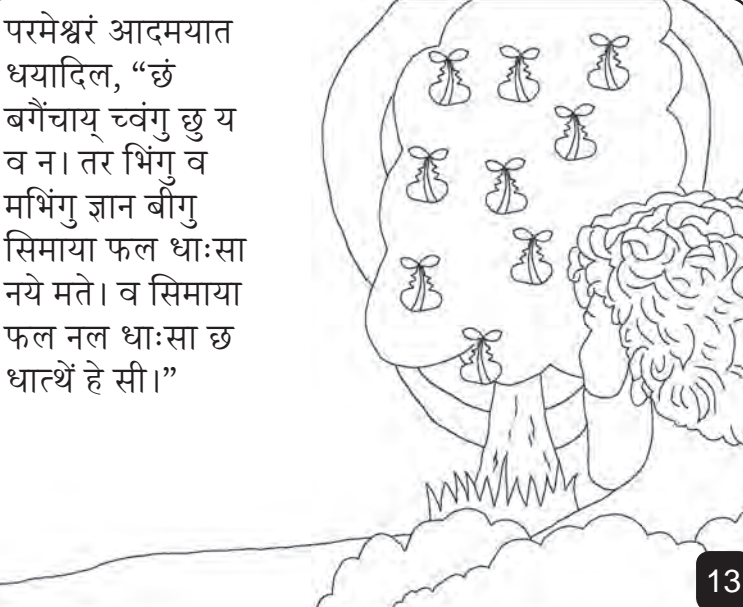 परमेश्वरं आदमयात
धयादिल, “छं
बगैंचाय् च्वंगु छु य
व न। तर भिंगु व
मभिंगु ज्ञान बीगु
सिमाया फल धाःसा
नये मते। व सिमाया
फल नल धाःसा छ
धात्थें हे सी।”
13